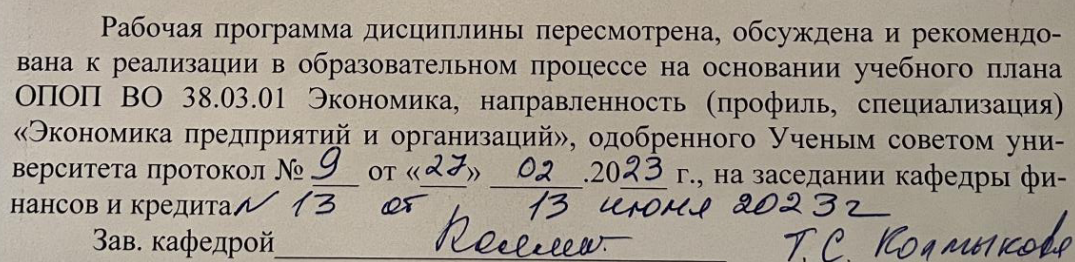 Рабочая программа дисциплины пересмотрена, обсуждена и рекомендо-
вана к реализации в образовательном процессе на основании учебного плана
ОПОП ВО 38.03.01 Экономика, направленность (профиль, специализация)
«Экономика предприятий и организаций», одобренного Ученым советом уни-
верситета протокол № 9 от «27» 02.2023 г., на заседании кафедры фи-
нансов и кредита N 13 от 13 июня 2023 г
Зав. кафедрой Т.С. Колмыкова